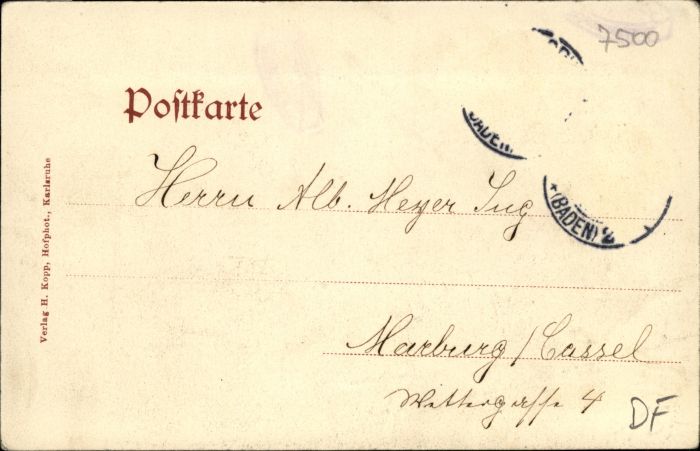 7500
(BADEN) 2
Postkarte
Herrn Alb. Meyer Ing
Marburg / Cassel
Wettergasse 4
DF
Verlag H. Kopp, Hofphot., Karlsruhe